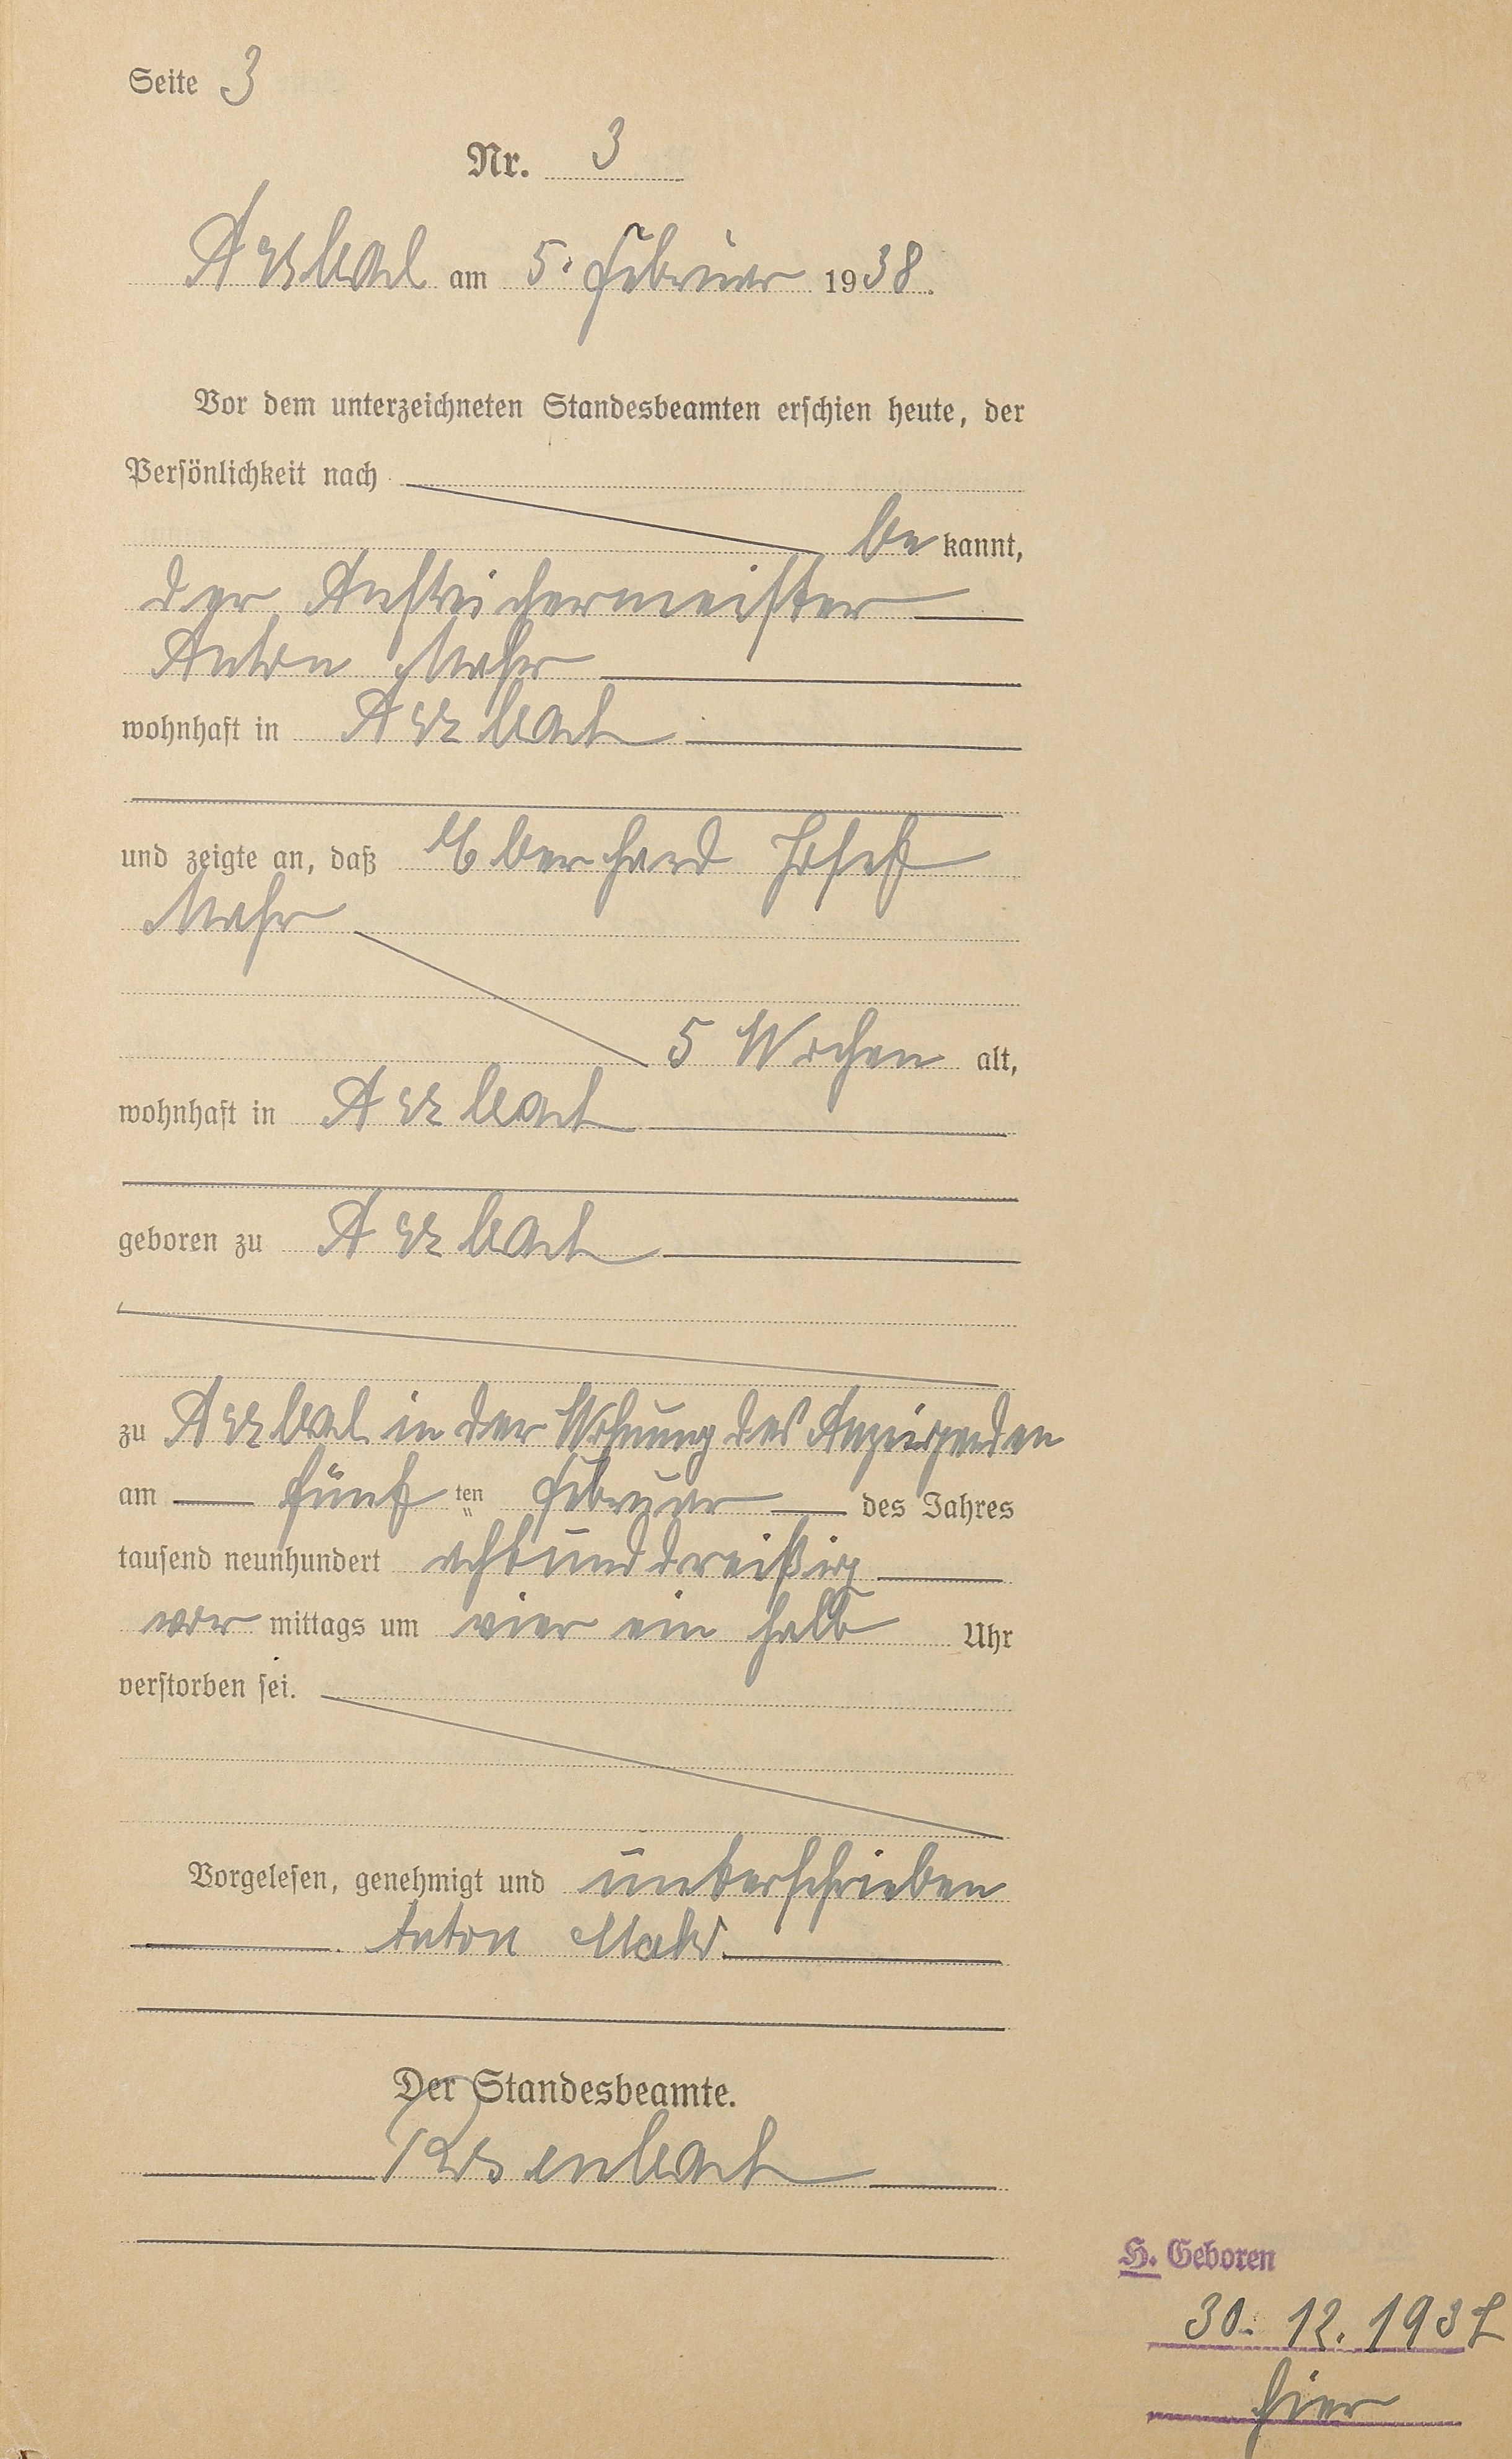 Seite 3
Nr. 3
Arzbach am 5. Februar 1938.
Vor dem unterzeichneten Standesbeamten erschien heute, der
Persönlichkeit nach
be kannt,
der Anstreichermeister
Anton Mahr
wohnhaft in Arzbach
und zeigte an, daß Eberhard Josef
Mahr
5 Wochen alt,
wohnhaft in Arzbach
geboren zu Arzbach
zu Arzbach in der Wohnung des Anzeigenden
am fünf ten Februar des Jahres
tausend neunhundert achtunddreißig
vor mittags um vier ein halb Uhr
verstorben sei.
Vorgelesen, genehmigt und unterschrieben
Anton Mahr
Der Standesbeamte.
H. Geboren
30. 12. 1937
hier